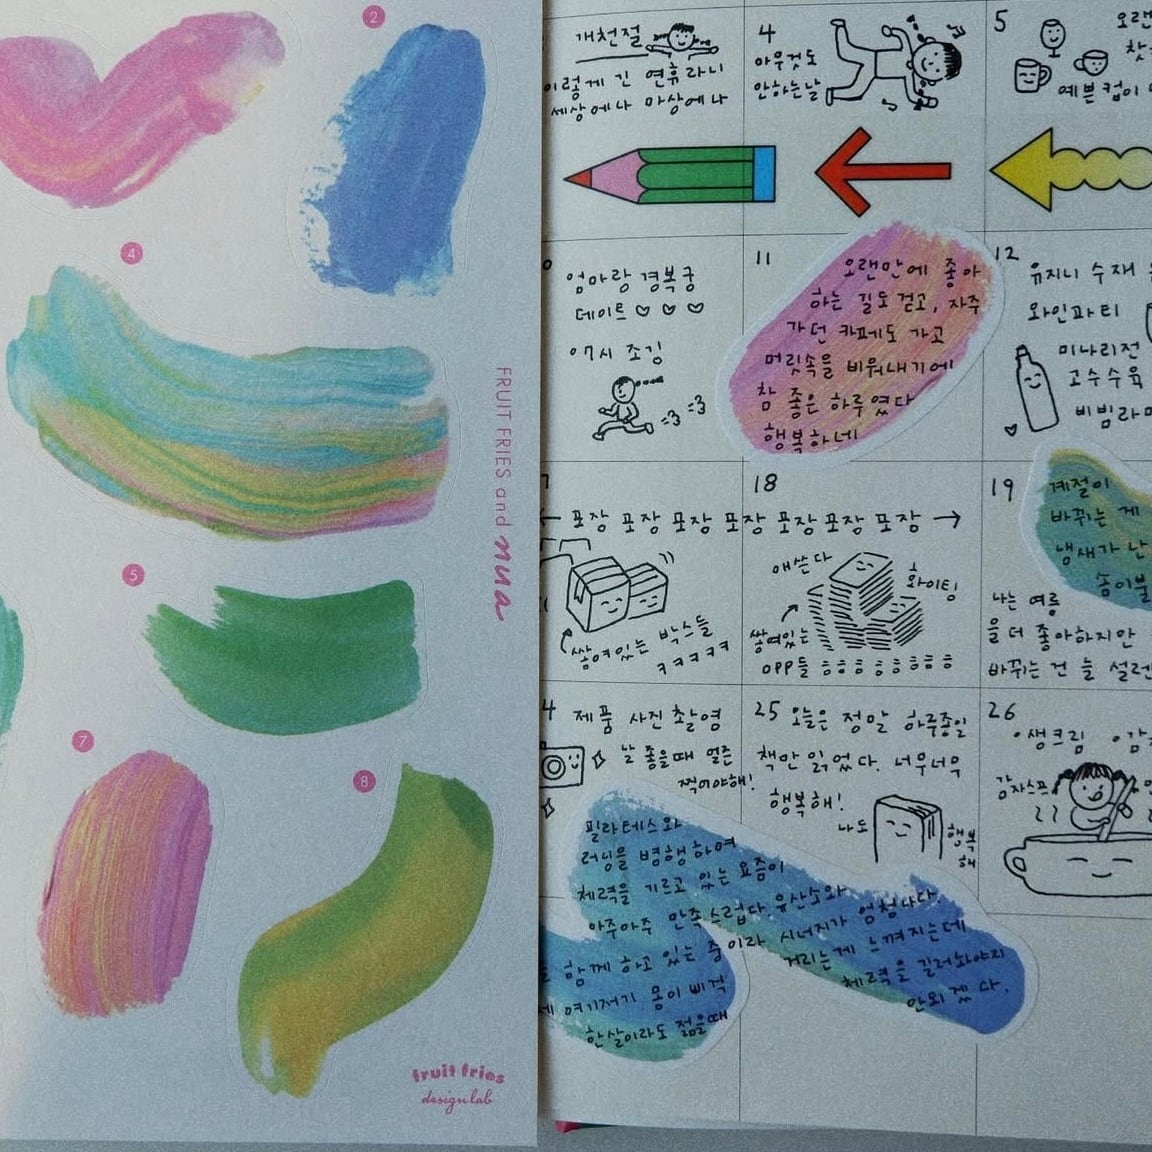 2
4
5
7
8
FRUIT FRIES and nua
fruit fries
design lab
개천절
이렇게 긴 연휴라니
세상에나 마상에나
4
아무것도
안하는날
5
오랜
예쁜 컵이
엄마랑 경복궁
데이트 ♡ ♡ ♡
07시 조깅
11
오랜만에 좋아
하는 길도 걷고, 자주
가던 카페도 가고
머릿속을 비워내기에
참 좋은 하루였다
행복하네
12
유지니 수재
와인파티
미나리전
고수수육
비빔라면
7
← 포장 포장 포장 포장 포장 포장 포장 →
쌓여있는 박스들
ㅋㅋㅋㅋㅋ
18
애쓴다
화이팅
쌓여있는
OPP들 ㅎㅎㅎㅎㅎㅎㅎㅎ
19
계절이
바뀌는 게
냄새가 난
송이불
나는 여름
을 더 좋아하지만
바뀌는 건 늘 설렌
4
제품 사진 촬영
날 좋을때 얼른
찍어야해!
25 오늘은 정말 하루종일
책만 읽었다. 너무너무
행복해!
나도
행복
해
26
•생크림 •감
감자스프
필라테스와
러닝을 병행하여
체력을 기르고 있는 요즘이
아주아주 만족스럽다 유산소와
함께 하고 있는 중이라 시너지가 엄청나다.
여기저기 몸이 삐걱
거리는게 느껴지는데
한살이라도 젊을때
체력을 길러놔야지
안되겠다.